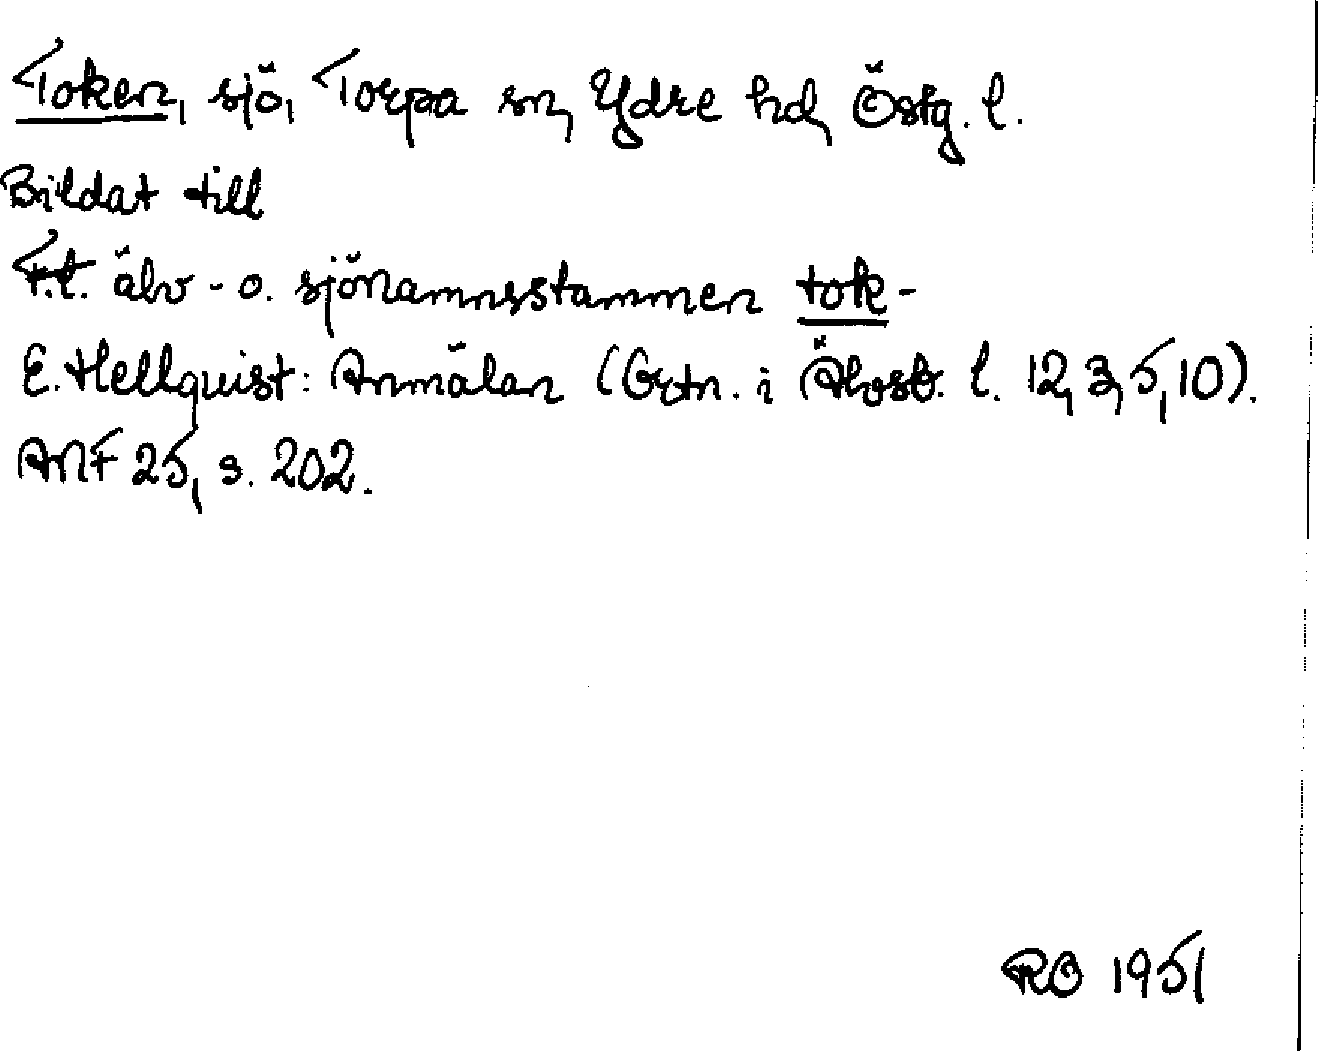 Token, sjö, Torpa sn, Ydre hd, Östg. l.
Bildat till
F.t. älv- o. sjönamnsstammen tok-
E. Hellquist: Anmälan (Ortn. i Älvsb. l. 12, 3, 5, 10).
ANF 25, s. 202.
RO 1951